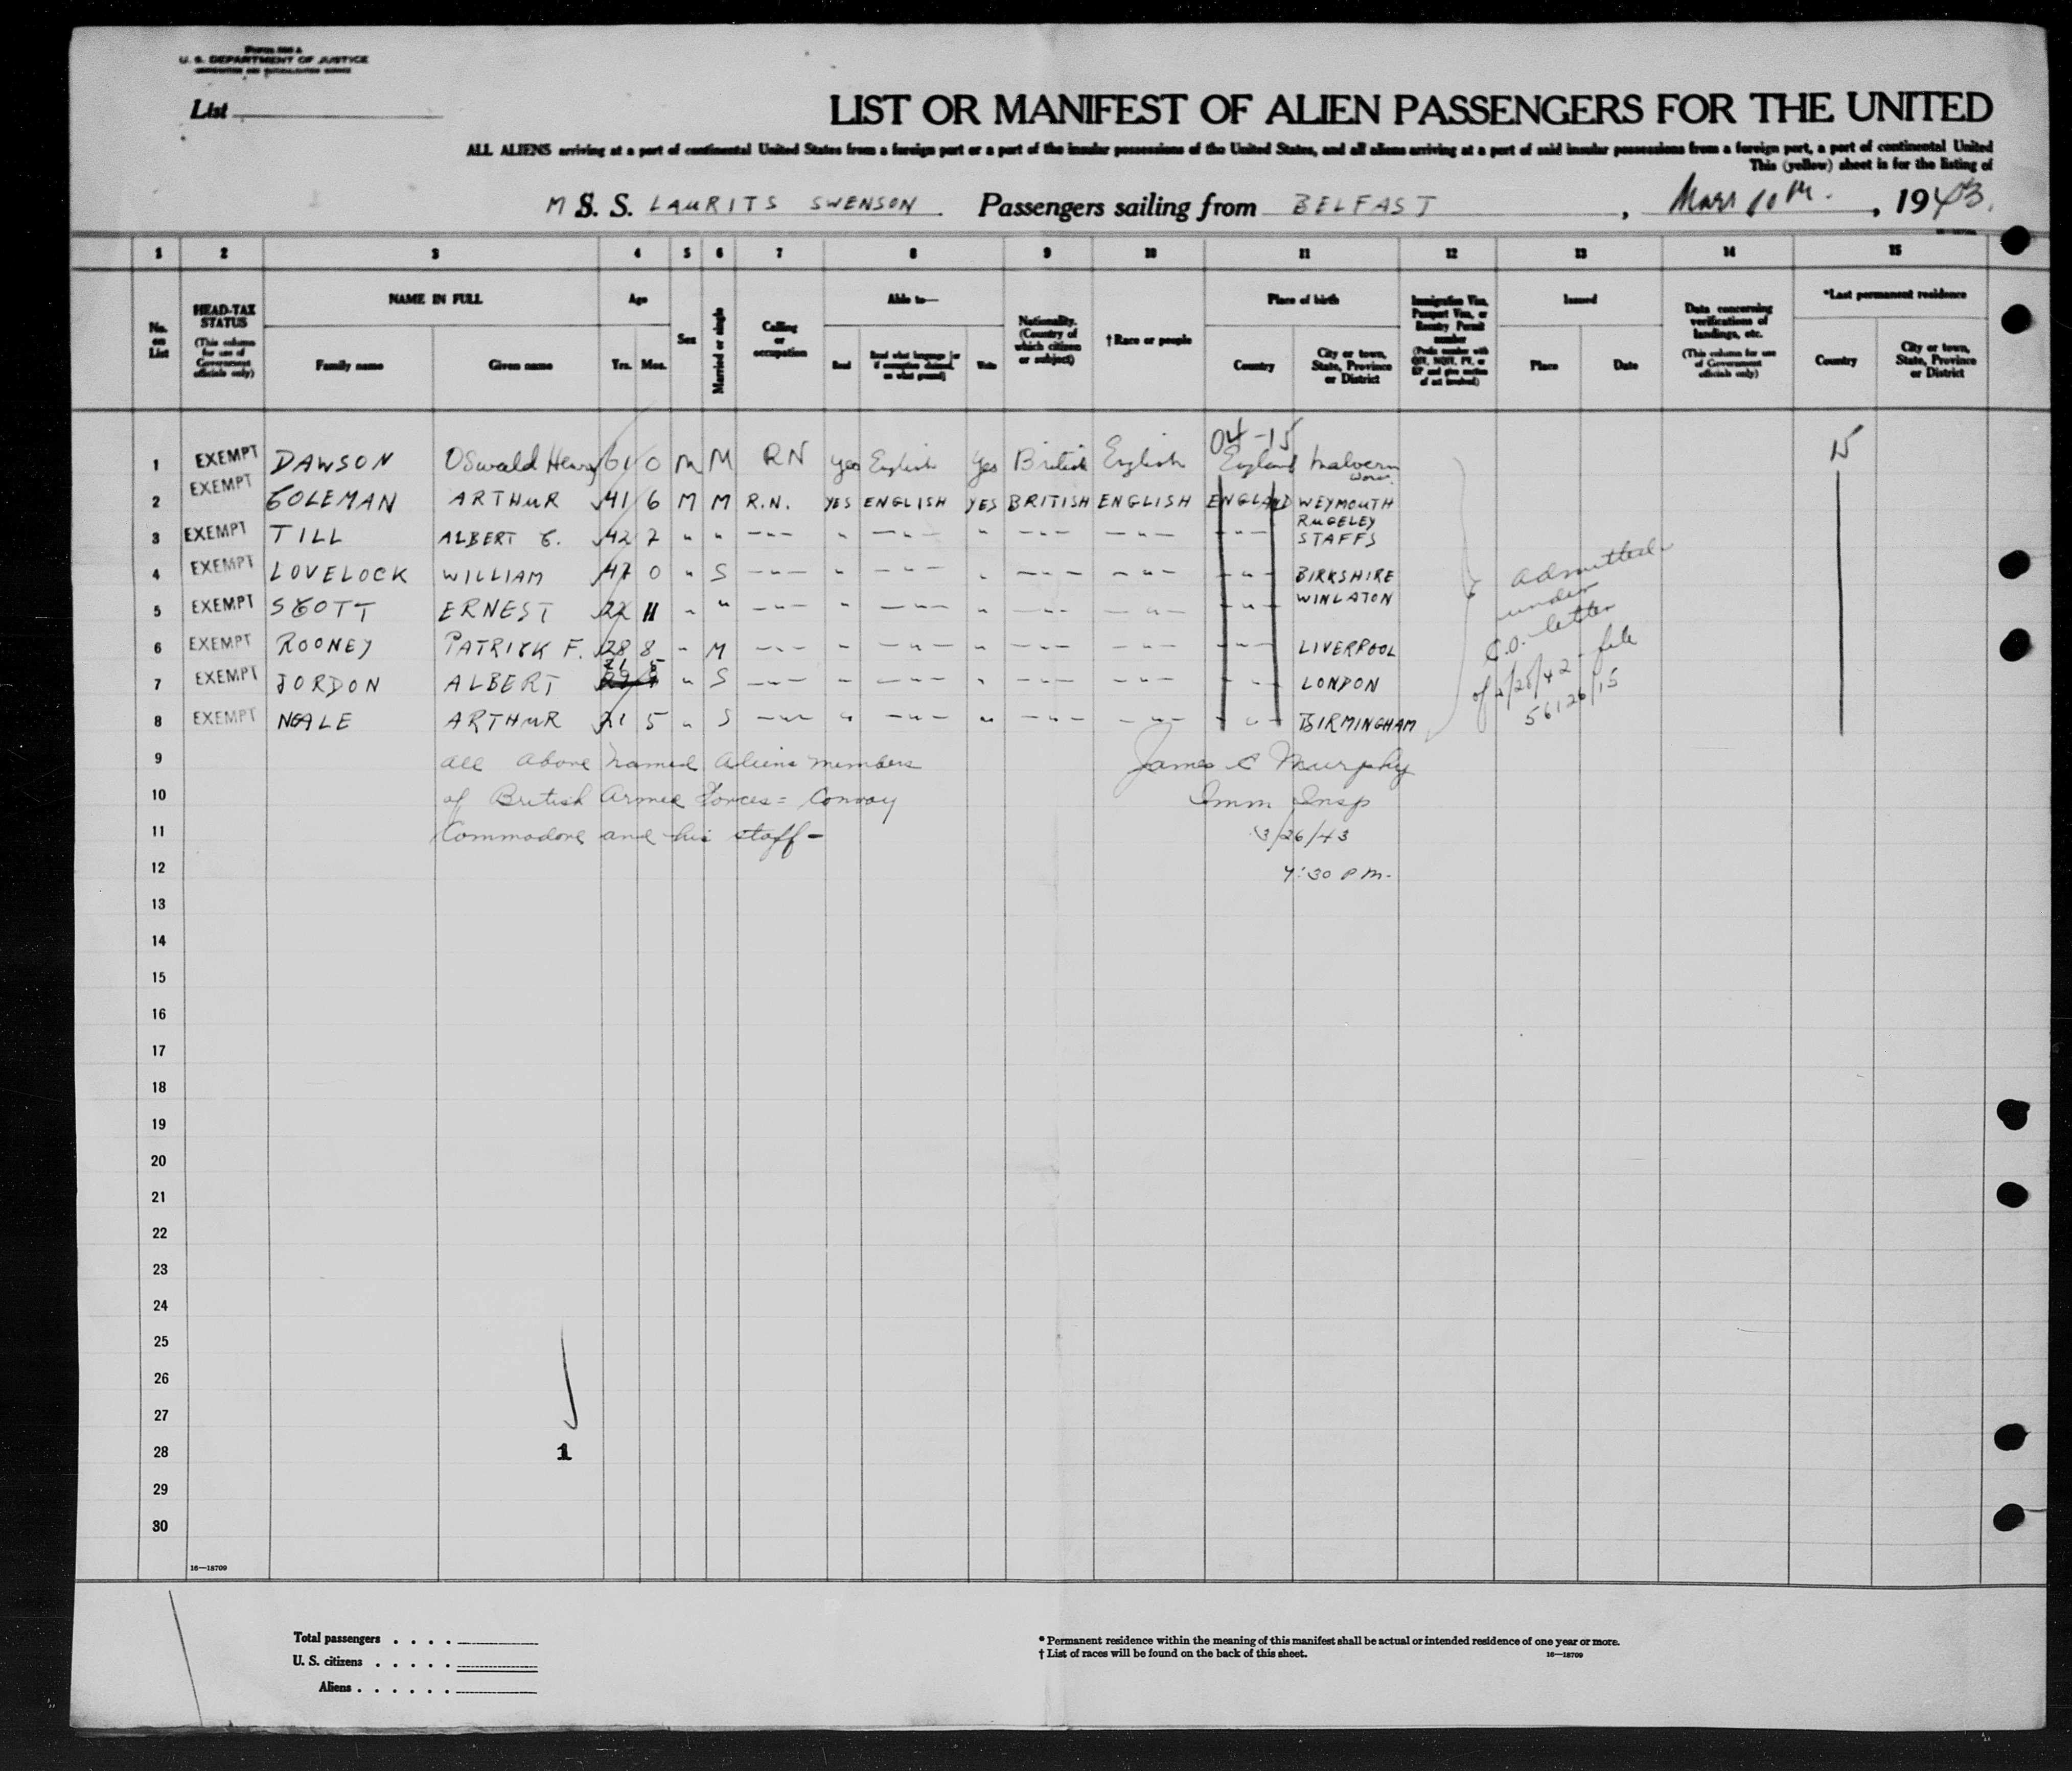 Form 500 A
U. S. DEPARTMENT OF JUSTICE
IMMIGRATION AND NATURALIZATION SERVICE
List
LIST OR MANIFEST OF ALIEN PASSENGERS FOR THE UNITED
ALL ALIENS arriving at a port of continental United States from a foreign port or a port of the insular possessions of the United States, and all aliens arriving at a port of said insular possessions from a foreign port, a port of continental United
This (yellow) sheet is for the listing of
M S. S. LAURITS SWENSON Passengers sailing from BELFAST, Mars 10th., 1943.
1 2 3 4 5 6 7 8 9 10 11 12 13 14 15
No. on List
HEAD-TAX STATUS (This column for use of Government officials only)
NAME IN FULL
Family name Given name
Age
Yrs. Mos.
Sex
Married or single
Calling or occupation
Able to—
Read Read what language [or if exemption claimed, on what ground] Write
Nationality. (Country of which citizen or subject)
†Race or people
Place of birth
Country City or town, State, Province or District
Immigration Visa, Passport Visa, or Reentry Permit number (Prefix number with QIV, NQIV, PV, or RP and give section of act involved)
Issued
Place Date
Data concerning verifications of landings, etc. (This column for use of Government officials only)
*Last permanent residence
Country City or town, State, Province or District
04-15 15
1 EXEMPT DAWSON Oswald Henry 61 0 M M RN yes English Yes British English England Malvern Worc.
2 EXEMPT COLEMAN ARTHUR 41 6 M M R.N. YES ENGLISH YES BRITISH ENGLISH ENGLAND WEYMOUTH
3 EXEMPT TILL ALBERT C. 42 7 " " -"- " -"- " -"- -"- -"- RUGELEY STAFFS
4 EXEMPT LOVELOCK WILLIAM 47 0 " S -"- " -"- " -"- -"- -"- BIRKSHIRE
5 EXEMPT SCOTT ERNEST 22 11 " " -"- " -"- " -"- -"- -"- WINLATON
6 EXEMPT ROONEY PATRICK F. 28 8 " M -"- " -"- " -"- -"- -"- LIVERPOOL
7 EXEMPT JORDON ALBERT 21 5 " S -"- " -"- " -"- -"- -"- LONDON
8 EXEMPT NEALE ARTHUR 21 5 " S -"- " -"- " -"- -"- -"- BIRMINGHAM
admitted
under
C.O. letter
of /28/42 - file
56126/15
9 all above named aliens members James C Murphy
10 of British Armed Forces = Convoy Imm Insp
11 Commodore and his staff - 3/26/43
12 4:30 PM.
13
14
15
16
17
18
19
20
21
22
23
24
25
26
27
28 1
29
30
16—18709
Total passengers . . . .
U. S. citizens . . . . .
Aliens . . . . . .
* Permanent residence within the meaning of this manifest shall be actual or intended residence of one year or more.
† List of races will be found on the back of this sheet. 16—18709